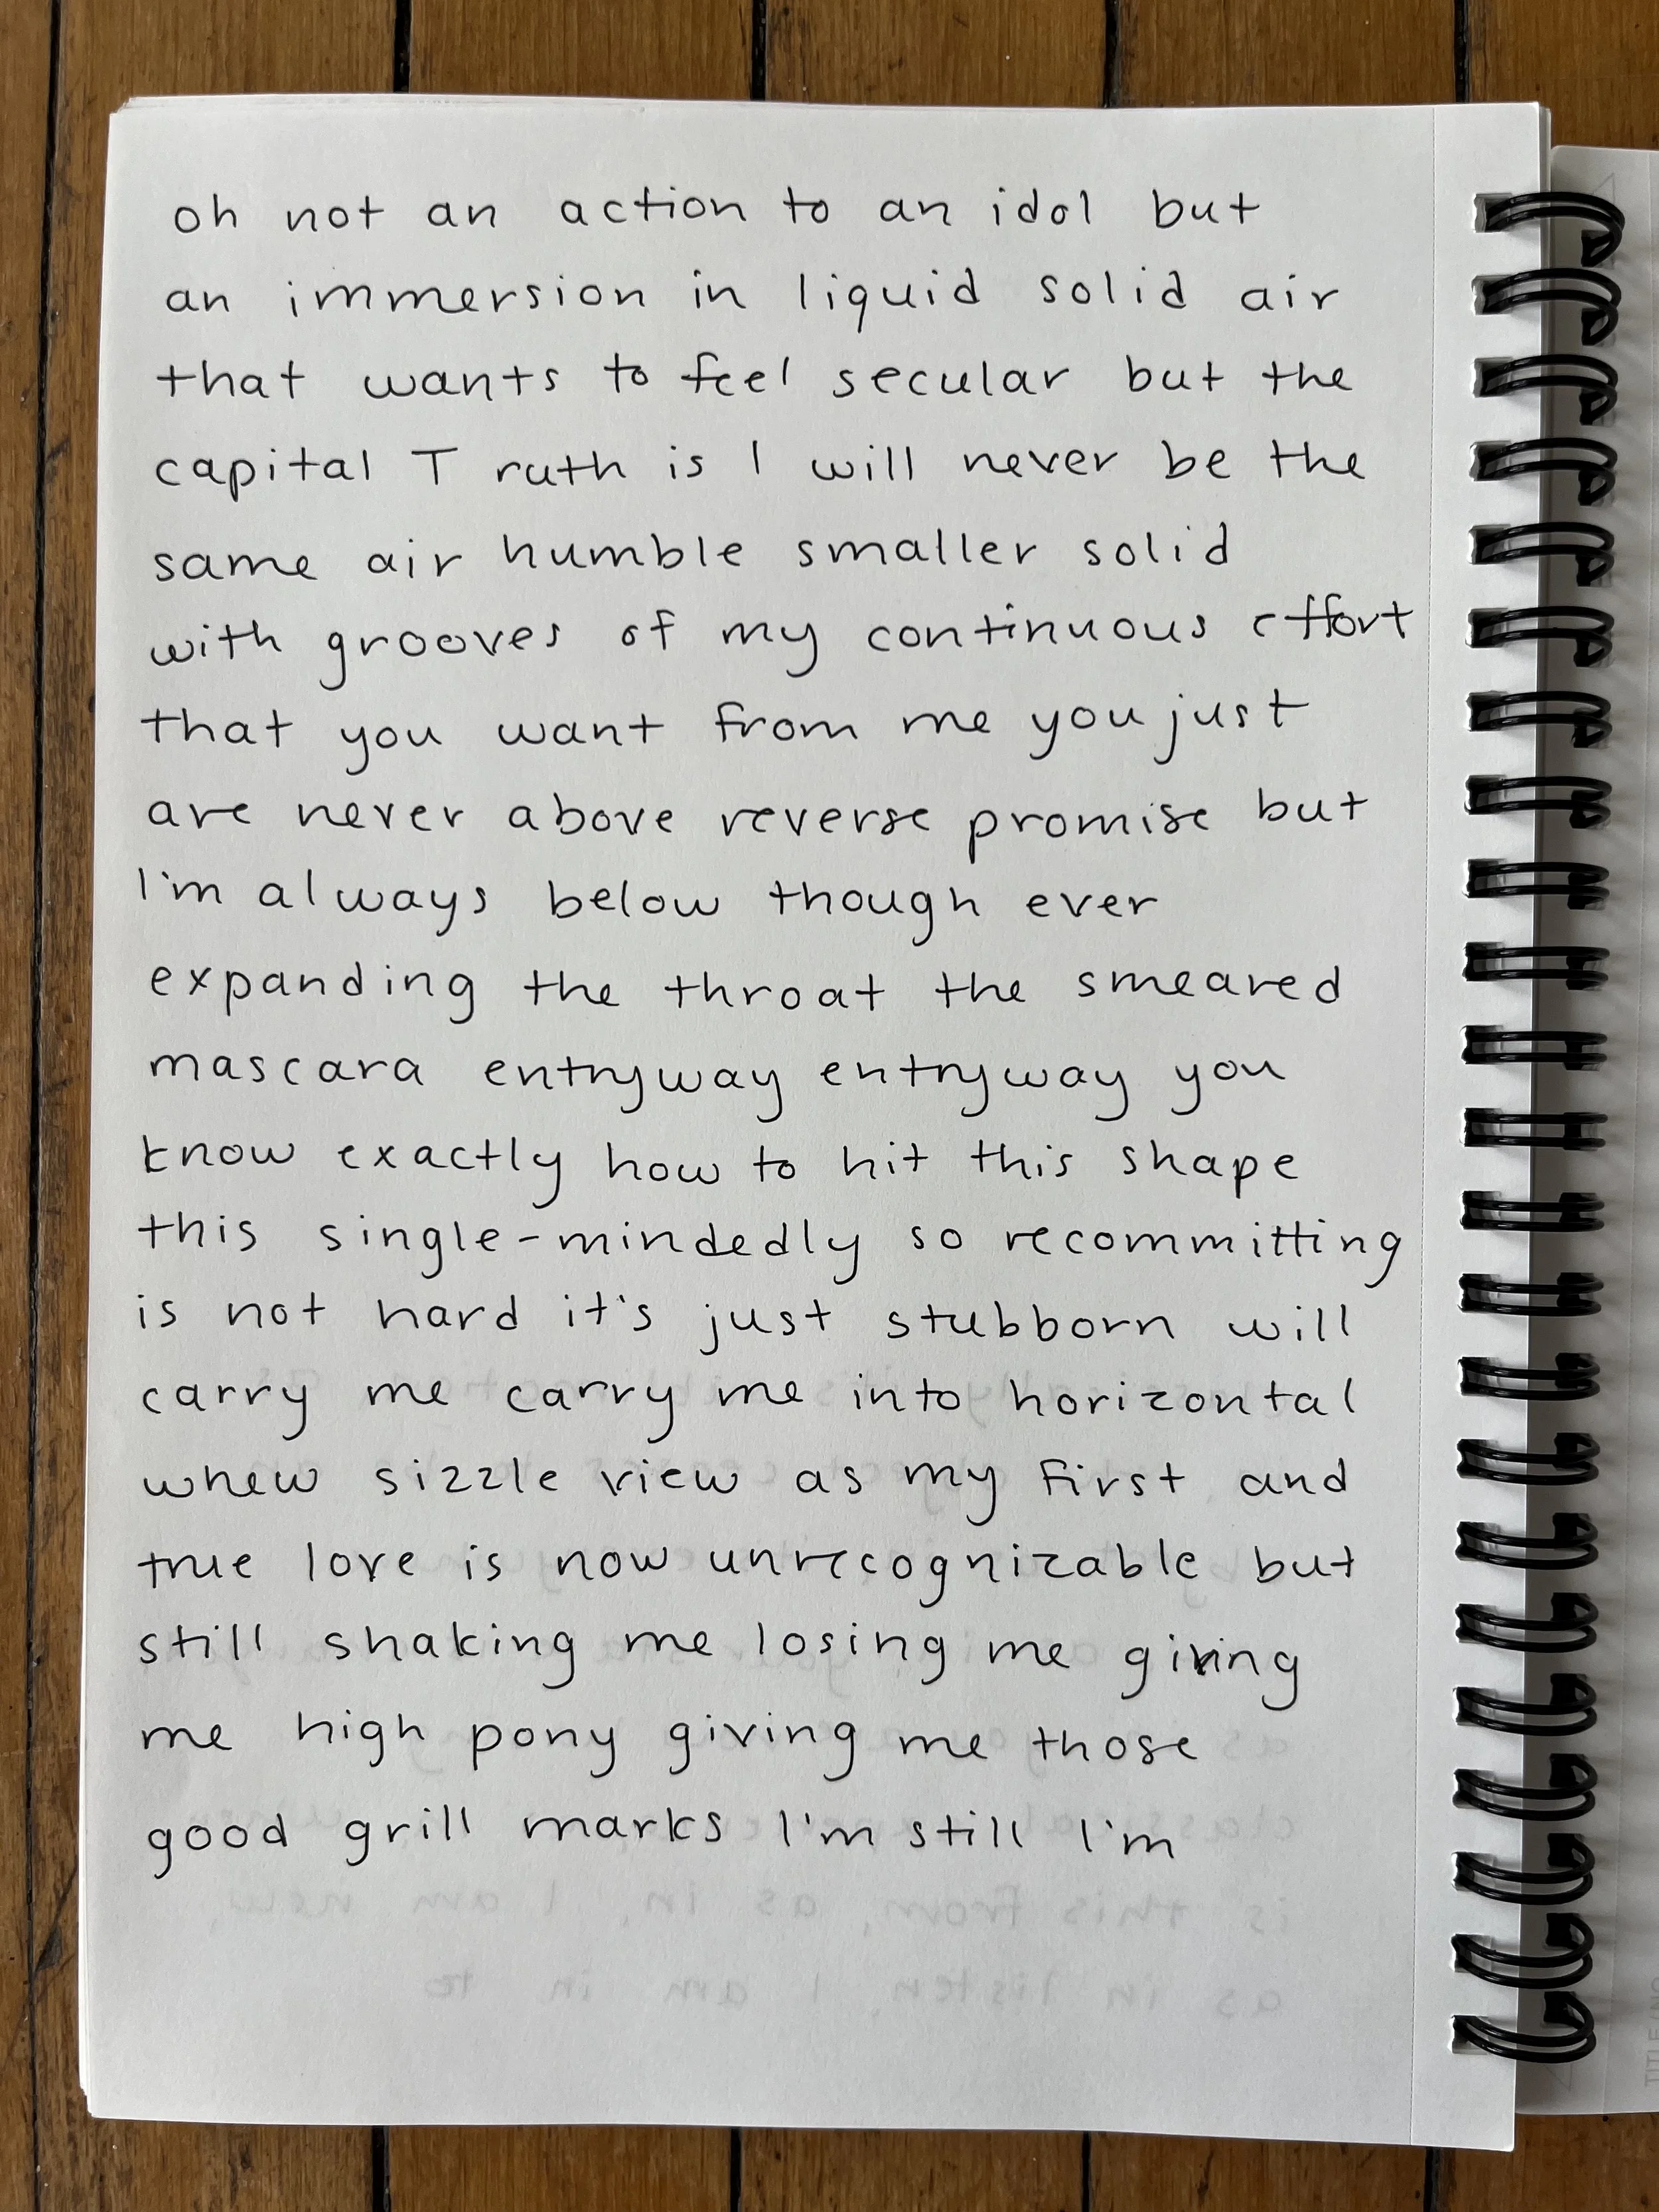 oh not an action to an idol but
an immersion in liquid solid air
that wants to feel secular but the
capital T ruth is I will never be the
same air humble smaller solid
with grooves of my continuous effort
that you want from me you just
are never above reverse promise but
I'm always below though ever
expanding the throat the smeared
mascara entryway entryway you
know exactly how to hit this shape
this single-mindedly so recommitting
is not hard it's just stubborn will
carry me carry me into horizontal
whew sizzle view as my first and
true love is now unrecognizable but
still shaking me losing me giving
me high pony giving me those
good grill marks I'm still I'm
is this from, as in, I am new,
as in listen, I am in to